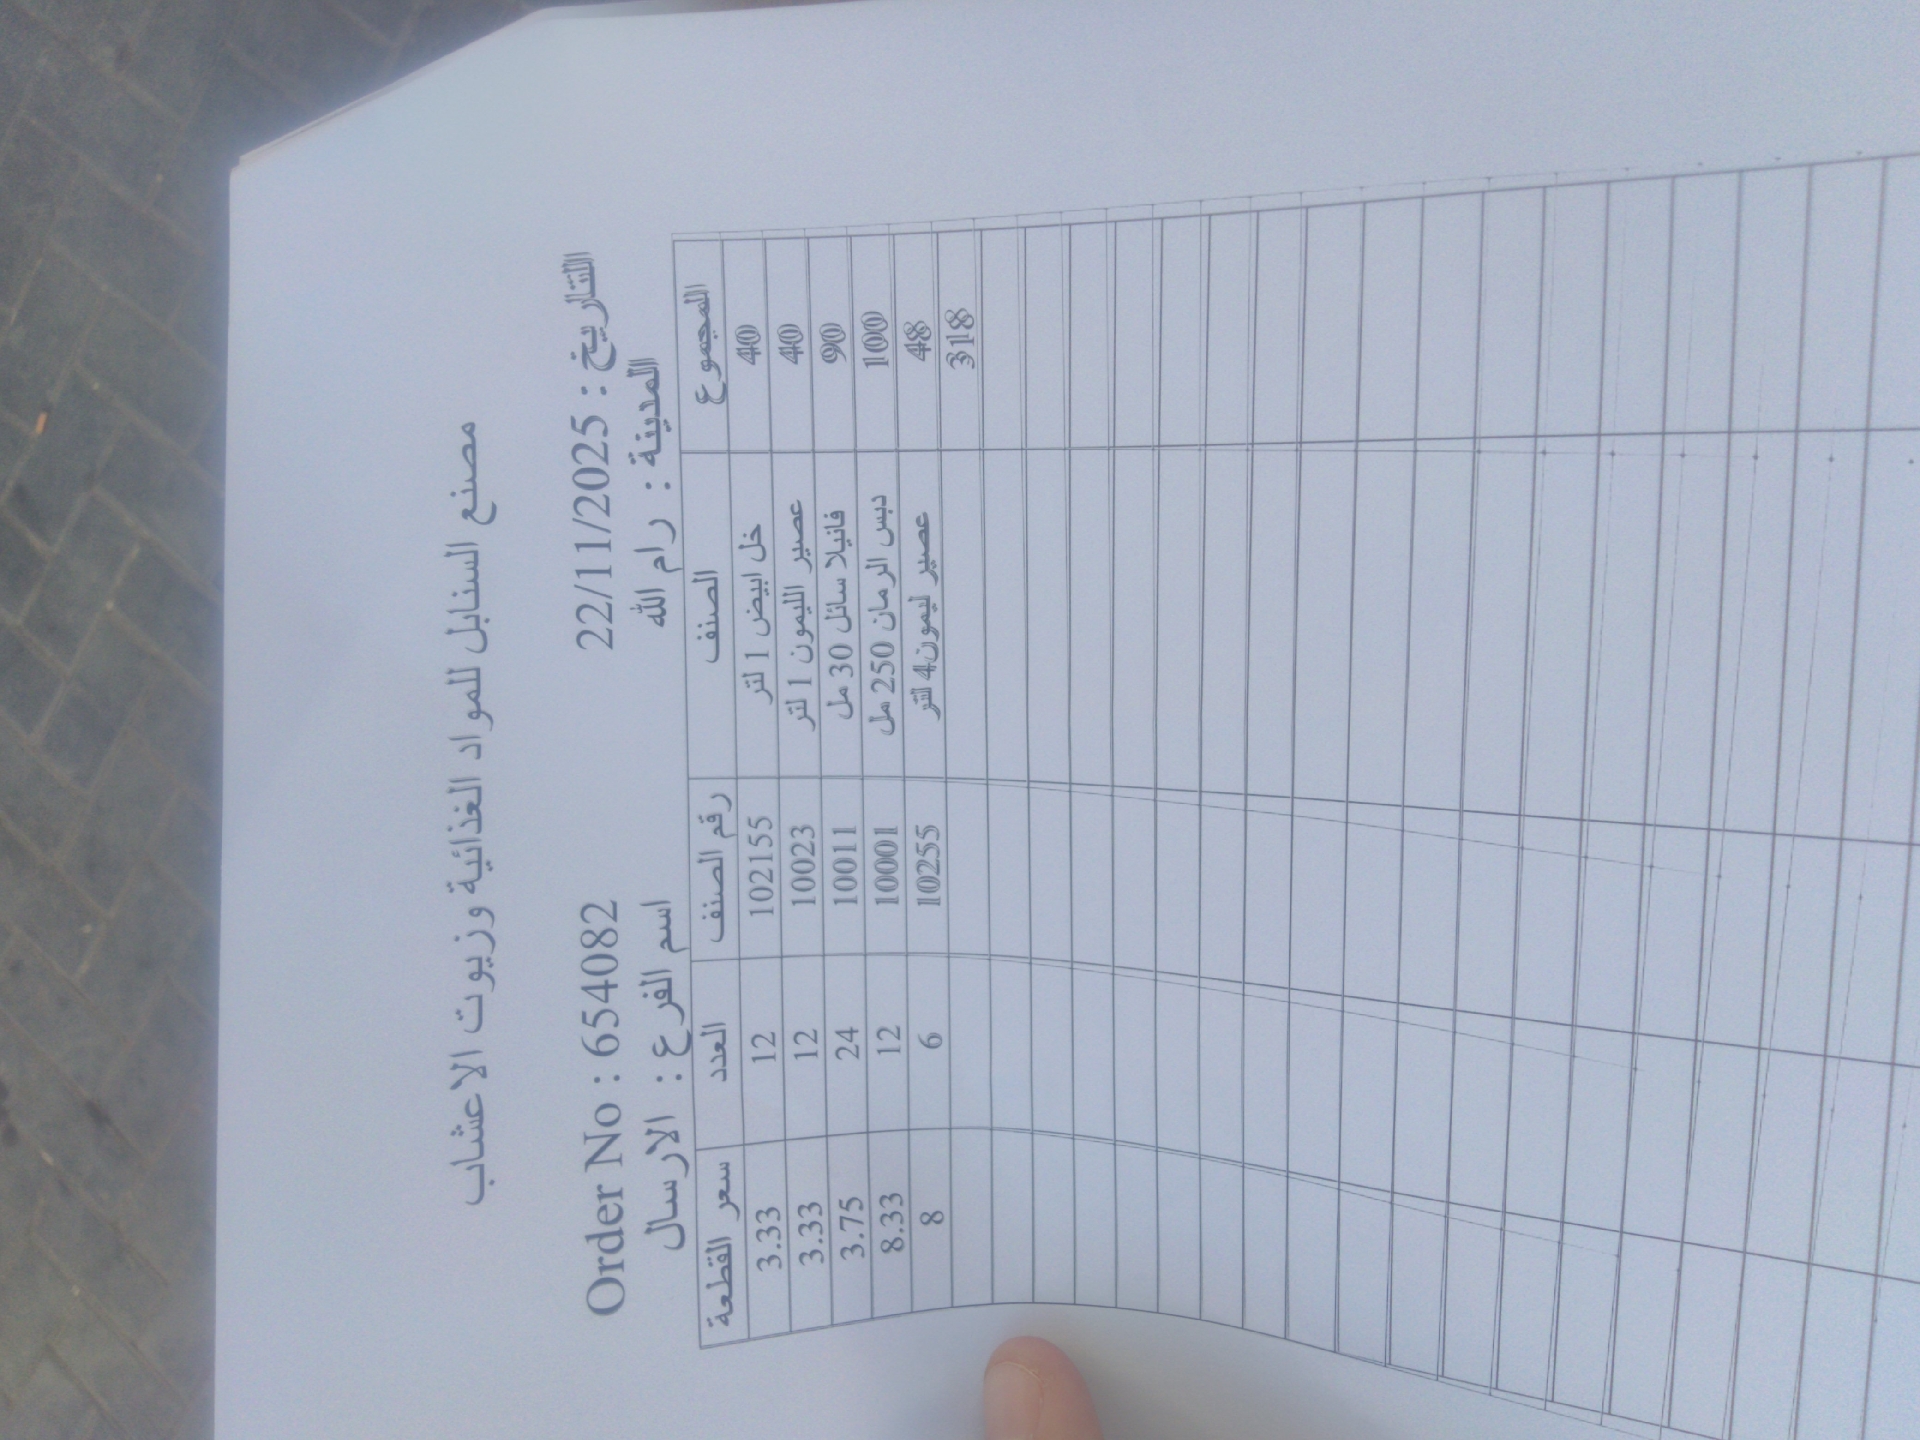 مصنع السنابل للمواد الغذائية وزيوت الاعشاب
التاريخ : 22/11/2025 Order No : 654082
المدينة : رام الله اسم الفرع : الارسال
المجموع الصنف رقم الصنف العدد سعر القطعة
40 خل ابيض 1 لتر 102155 12 3.33
40 عصير الليمون 1 لتر 10023 12 3.33
90 فانيلا سائل 30 مل 10011 24 3.75
100 دبس الرمان 250 مل 10001 12 8.33
48 عصير ليمون4 لتر 10255 6 8
318